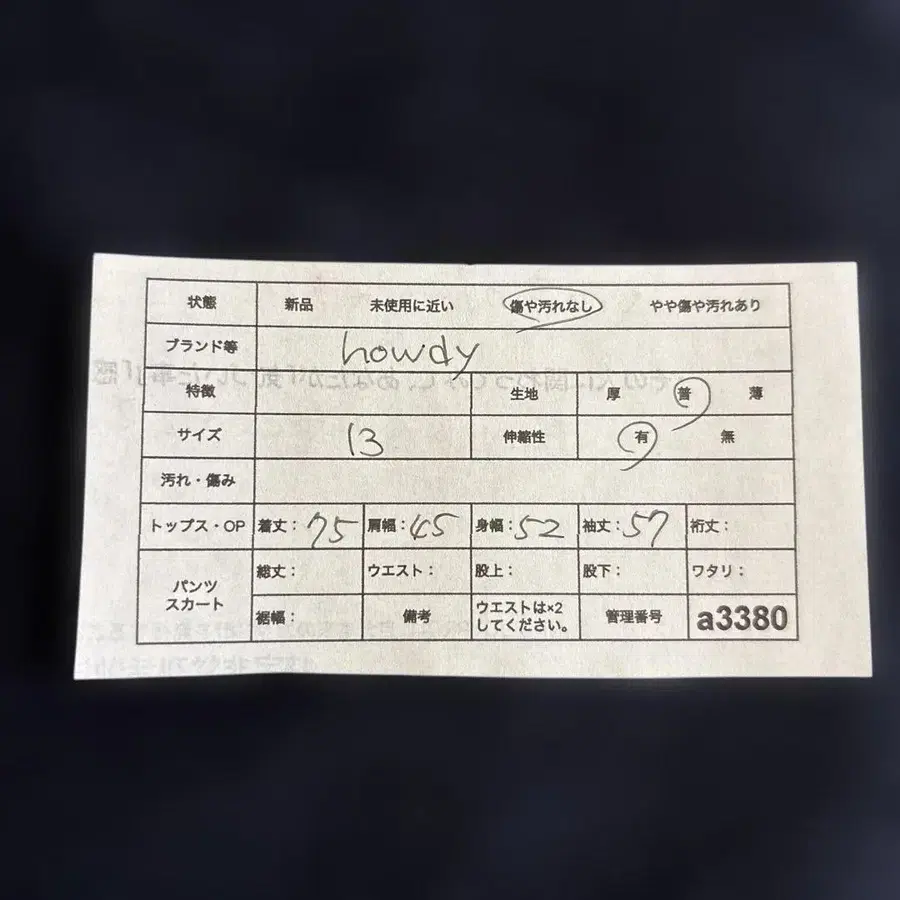 状態 新品 未使用に近い 傷や汚れなし やや傷や汚れあり
ブランド等 howdy
特徴 生地 厚 普 薄
サイズ 13 伸縮性 有 無
汚れ・傷み
トップス・OP 着丈：75 肩幅：45 身幅：52 袖丈：57 裄丈：
パンツ スカート 総丈： ウエスト： 股上： 股下： ワタリ：
裾幅： 備考 ウエストは×2 してください。 管理番号 a3380